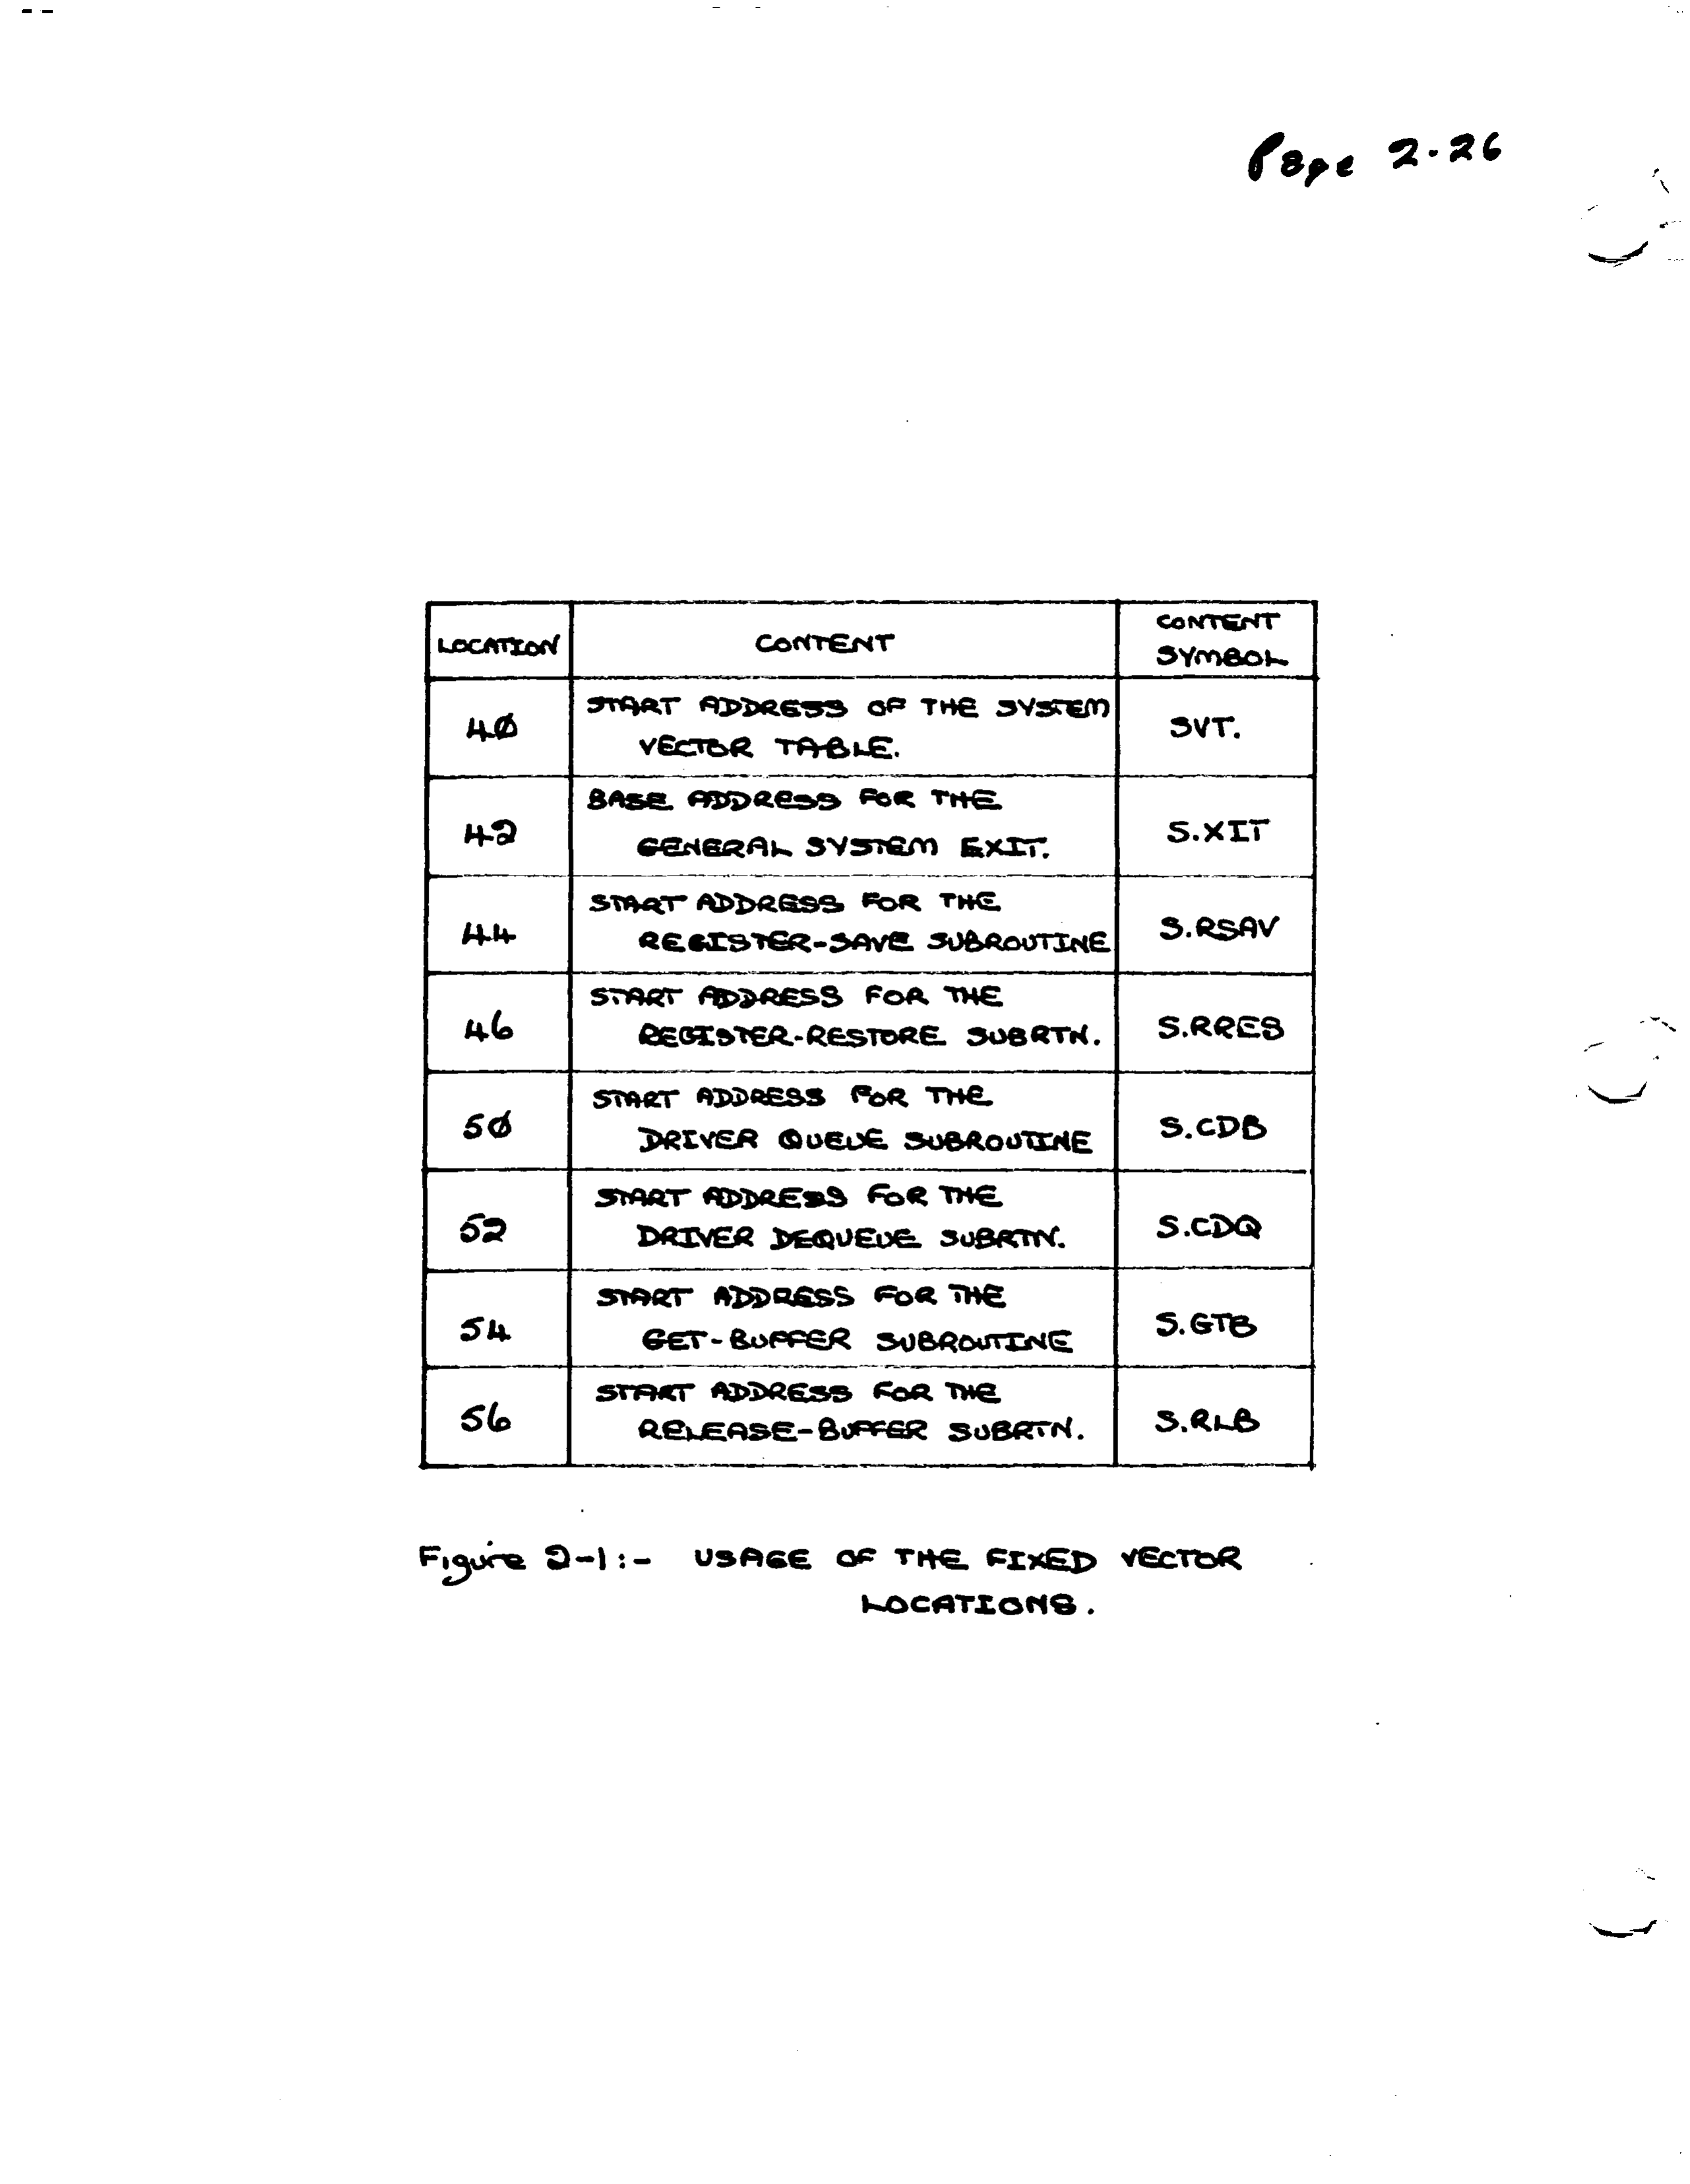 Page 2-26
LOCATION CONTENT CONTENT
SYMBOL
40 START ADDRESS OF THE SYSTEM SVT.
VECTOR TABLE.
42 BASE ADDRESS FOR THE S.XIT
GENERAL SYSTEM EXIT.
44 START ADDRESS FOR THE S.RSAV
REGISTER-SAVE SUBROUTINE
46 START ADDRESS FOR THE S.RRES
REGISTER-RESTORE SUBRTN.
50 START ADDRESS FOR THE S.CDB
DRIVER QUEUE SUBROUTINE
52 START ADDRESS FOR THE S.CDQ
DRIVER DEQUEUE SUBRTN.
54 START ADDRESS FOR THE S.GTB
GET-BUFFER SUBROUTINE
56 START ADDRESS FOR THE S.RLB
RELEASE-BUFFER SUBRTN.
Figure 2-1:- USAGE OF THE FIXED VECTOR
LOCATIONS.